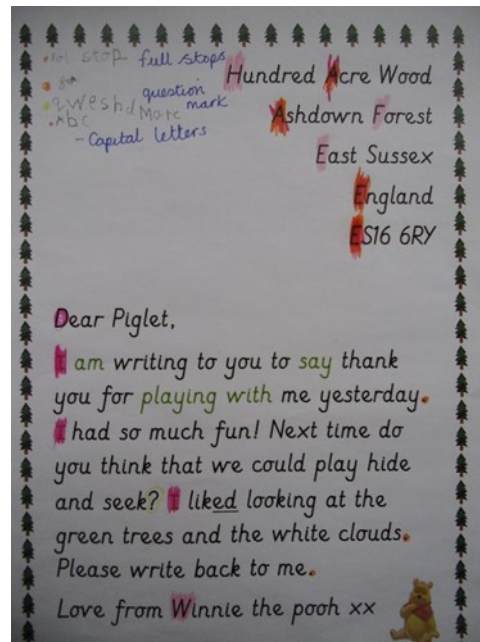 fol stop full stops
qweshd Marc question mark
Abc
- Capital letters
Hundred Acre Wood
Ashdown Forest
East Sussex
England
ES16 6RY
Dear Piglet,
I am writing to you to say thank
you for playing with me yesterday.
I had so much fun! Next time do
you think that we could play hide
and seek? I liked looking at the
green trees and the white clouds.
Please write back to me.
Love from Winnie the pooh xx